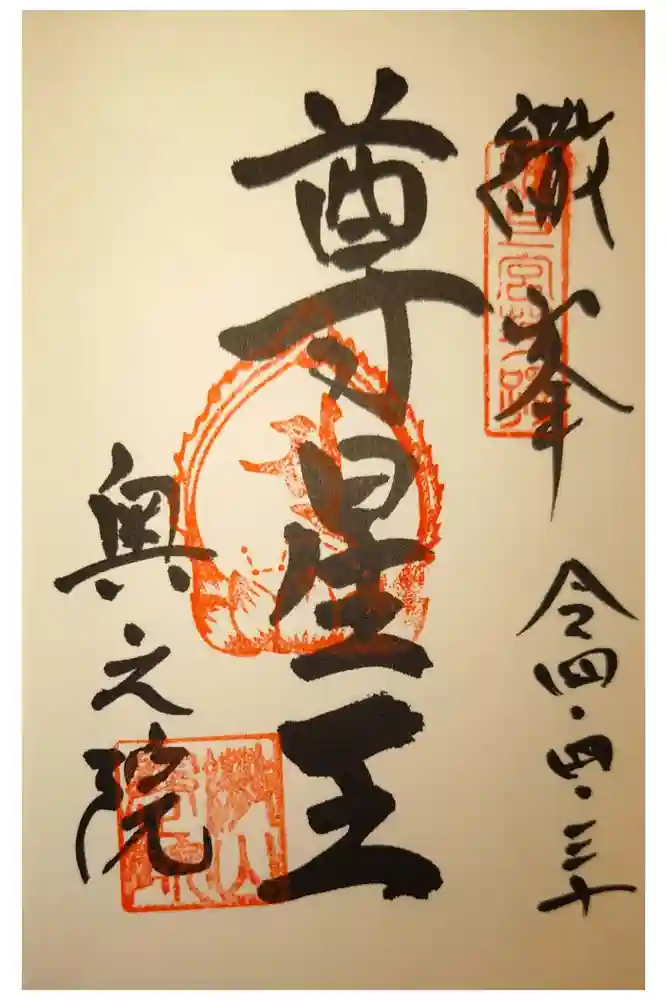 繖峯
令四・四・三十
尊星王
奥之院